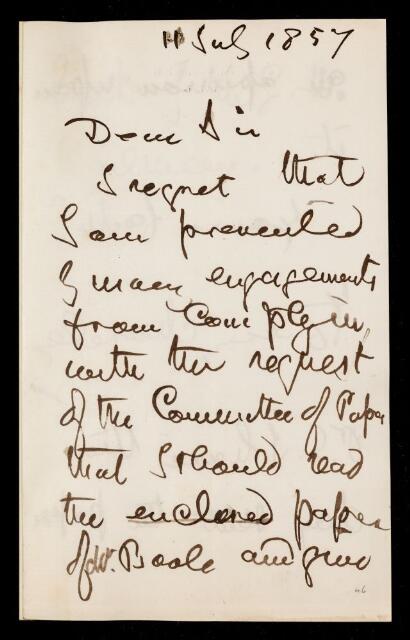 11 July 1857
Dear Sir
I regret that
I am prevented
by many engagements
from Complying
with the request
of the Committee of Papers
that I should read
the enclosed paper
of Dr. Boole and give
46